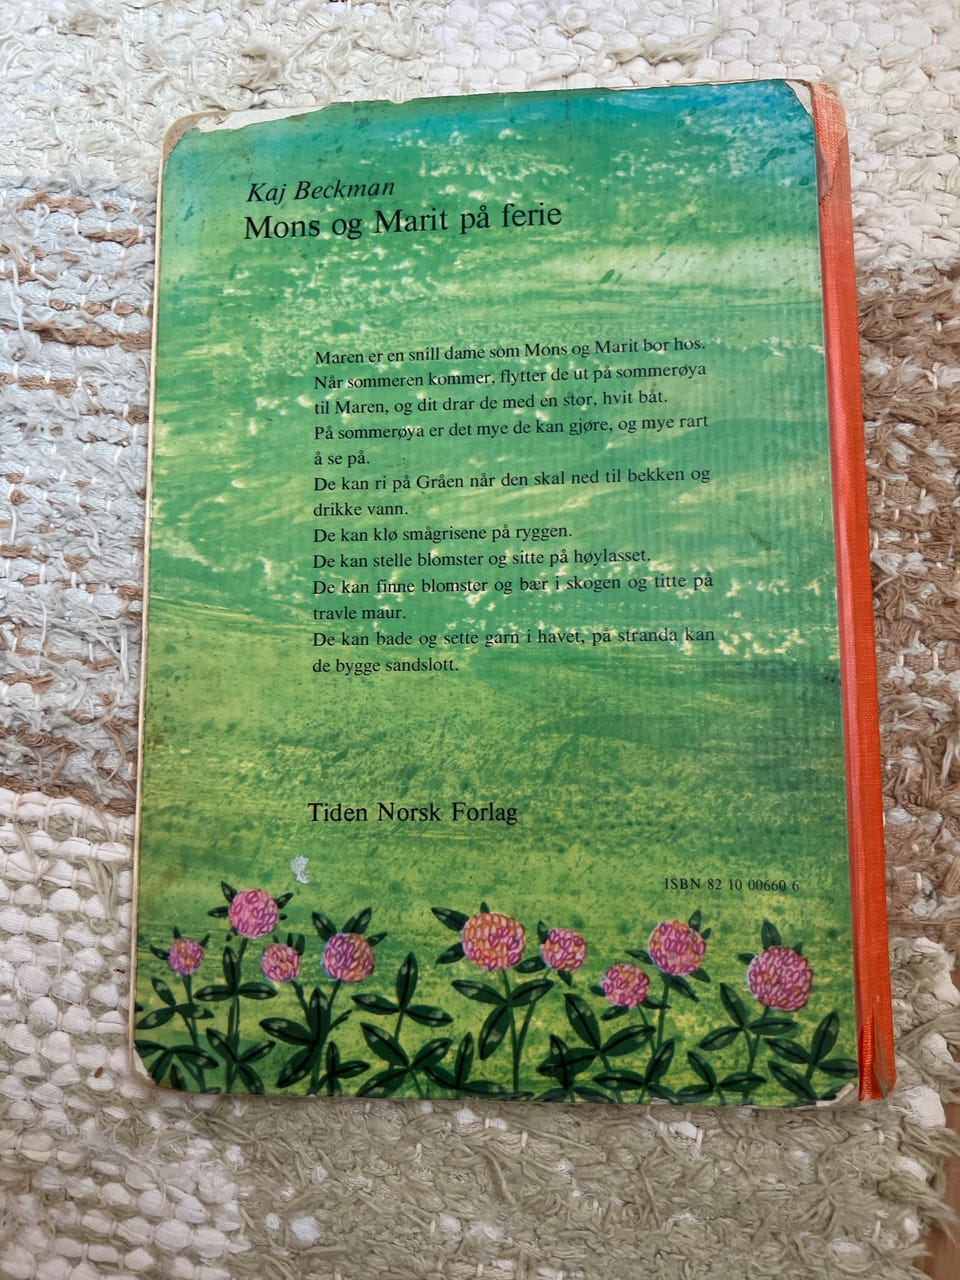 Kaj Beckman
Mons og Marit på ferie
Maren er en snill dame som Mons og Marit bor hos.
Når sommeren kommer, flytter de ut på sommerøya
til Maren, og dit drar de med en stor, hvit båt.
På sommerøya er det mye de kan gjøre, og mye rart
å se på.
De kan ri på Gråen når den skal ned til bekken og
drikke vann.
De kan klø smågrisene på ryggen.
De kan stelle blomster og sitte på høylasset.
De kan finne blomster og bær i skogen og titte på
travle maur.
De kan bade og sette garn i havet, på stranda kan
de bygge sandslott.
Tiden Norsk Forlag
ISBN 82 10 00660 6